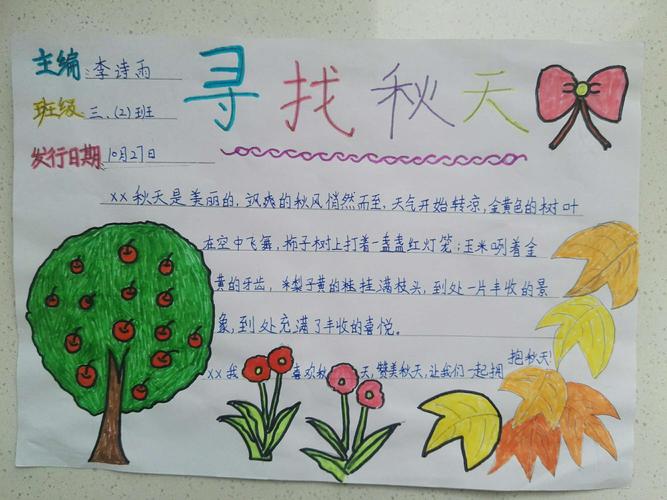 寻找秋天
主编 李诗雨
班级 三、(2)班
发行日期 10月27日
xx秋天是美丽的,飒爽的秋风悄然而至,天气开始转凉,金黄色的树叶
在空中飞舞,柿子树上打着一盏盏红灯笼;玉米咧着金
黄的牙齿,梨子黄的桂挂满枝头,到处一片丰收的景
象,到处充满了丰收的喜悦。
xx我 喜欢秋天,赞美秋天,让我们一起拥
抱秋天!